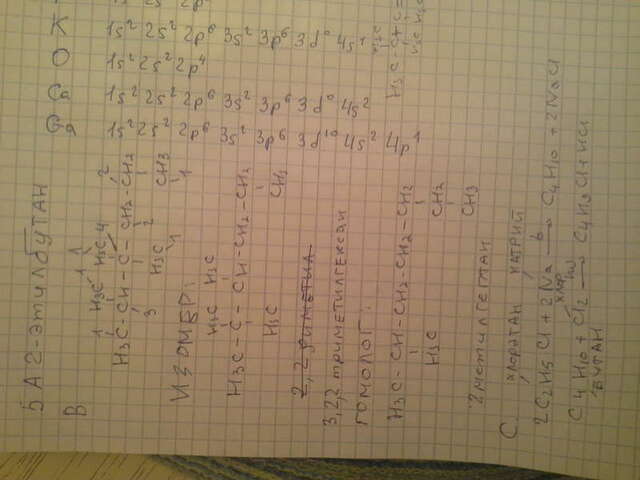 1s² 2s² 2p
K 1s² 2s² 2p⁶ 3s² 3p⁶ 3d⁰ 4s¹
O 1s² 2s² 2p⁴
Ca 1s² 2s² 2p⁶ 3s² 3p⁶ 3d⁰ 4s²
Ga 1s² 2s² 2p⁶ 3s² 3p⁶ 3d¹⁰ 4s² 4p¹
5 A 2-ЭТИЛБУТАН
B
H₃C H₃C
H₃C-CH-C-CH₂-CH₂
H₃C CH3
ИЗОМЕР:
H₃C H₃C
H₃C-C-CH-CH₂-CH₂
H₃C CH₃
3,2,2 триметилгексан
ГОМОЛОГ:
H₃C-CH-CH₂-CH₂-CH₂
H₃C CH₂
CH₃
2 метилгептан
C. хлорэтан натрий
2C₂H5Cl + 2Na → C₄H₁₀ + 2NaCl
C₄H₁₀ + Cl₂ → C₄H₉Cl + HCl
БУТАН